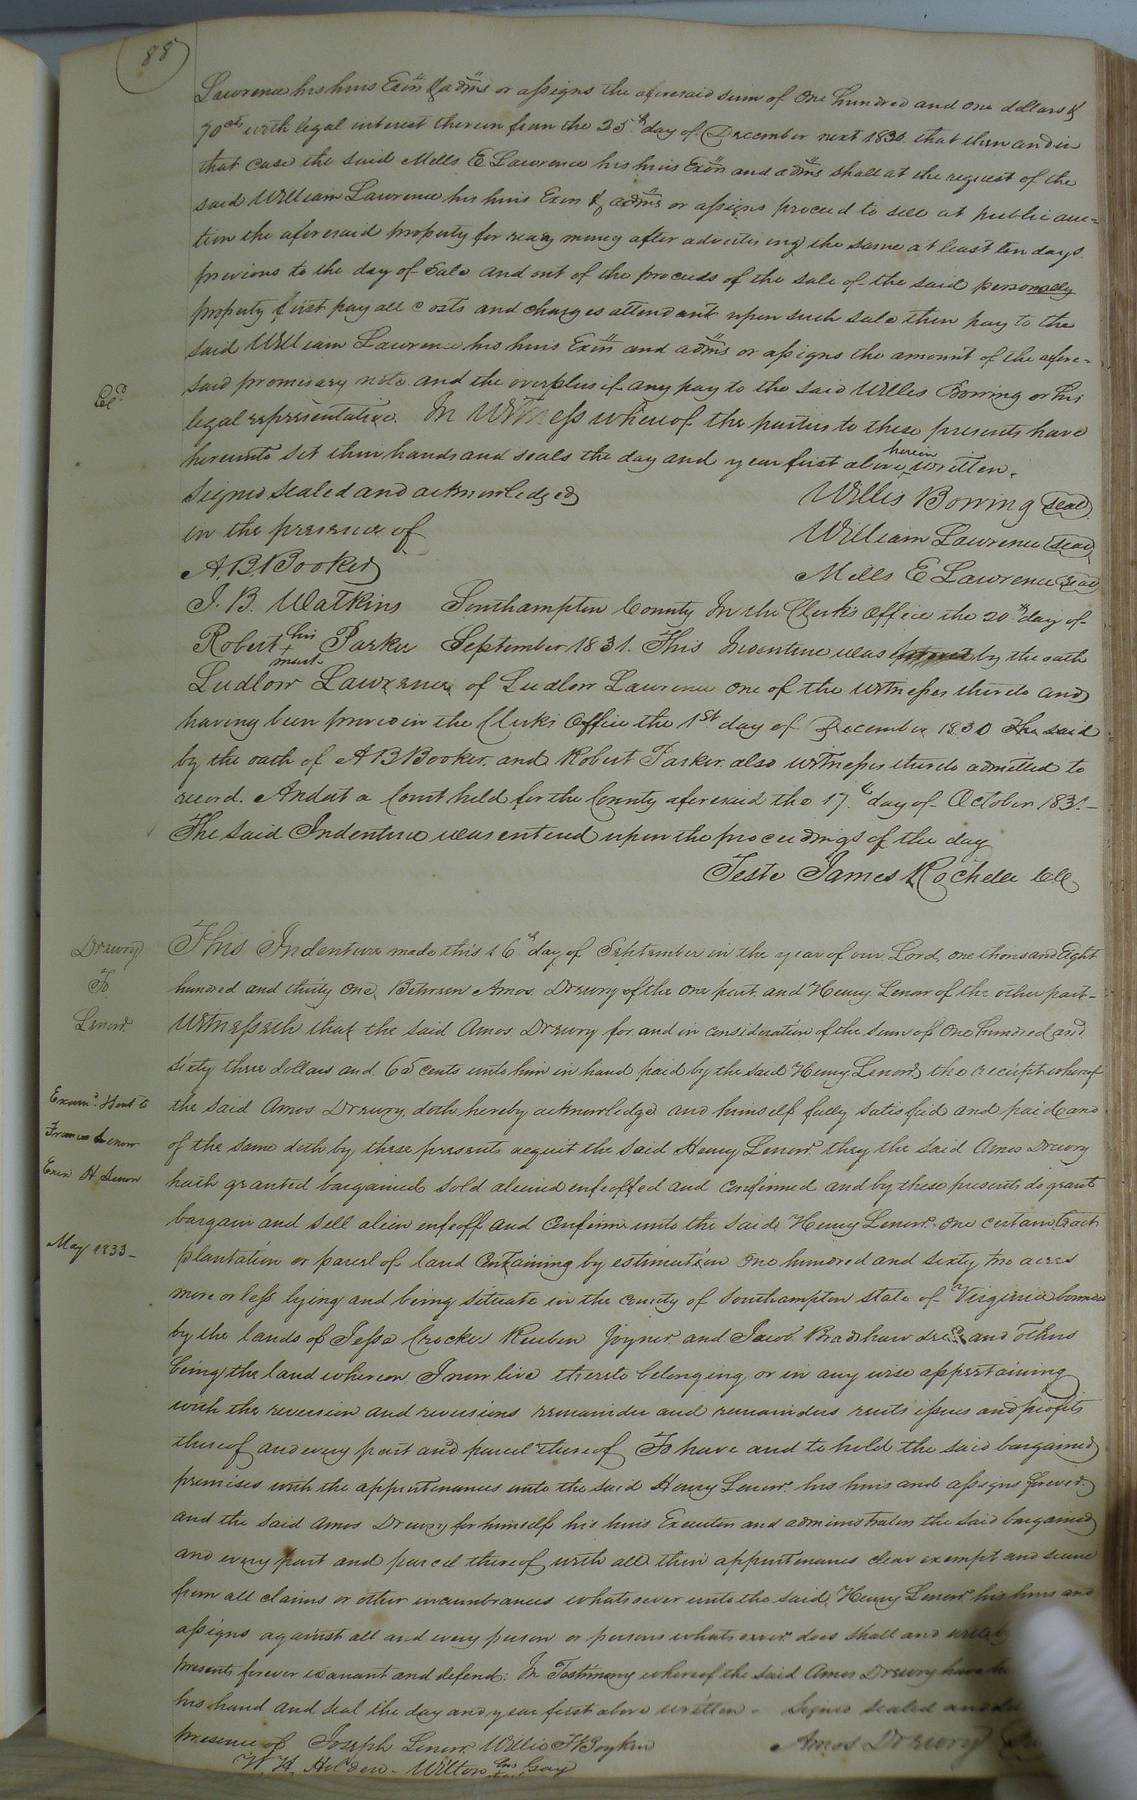 88
Lawrence his heirs Exors & adms or assigns the aforesaid sum of one hundred and one dollars &
70cts with legal interest therein from the 25th day of December next 1830 that then and in
that case the said Mills E Lawrence his heirs Exors and adms shall at the request of the
said William Lawrence his heirs Exors & adms or assigns proceed to sell at public auc=
tion the aforesaid property for ready money after advertising the same at least ten days
previous to the day of Sale and out of the proceeds of the sale of the said personally
property first pay all costs and charges attendant upon such sale then pay to the
said William Lawrence his heirs Exors and adms or assigns the amount of the afore=
said promisary note and the overplus if any pay to the said Willis Bowing or his
Ecd
legal representative. In Witness whereof the parties to these presents have
hereunto set their hands and seals the day and year first above herein written.
Signed sealed and acknowledged Willis Bowing seal
in the presence of William Lawrence seal
A. B. Booker Mills E Lawrence seal
J. B. Watkins Southampton County In the Clerk's Office the 20th day of
Robert his + mark Parker September 1831. This Indenture was by the oath
Ludlow Lawrence of Ludlow Lawrence one of the witnesses thereto and
having been proved in the Clerks Office the 1st day of December 1830 The said
by the oath of A B Booker and Robert Parker also witnesses thereto admitted to
record. And at a Court held for the County aforesaid the 17th day of October 1831-
The said Indenture was entered upon the proceedings of the day
Teste James Rochelle CC
Drewry
To
Lenow
This Indenture made this 16th day of September in the year of our Lord, one thousand Eight
hundred and thirty one, Between Amos Drewry of the one part and Henry Lenow of the other part-
Witnesseth that the said Amos Drewry for and in consideration of the sum of One hundred and
sixty three dollars and 65 cents unto him in hand paid by the said Henry Lenow, the receipt whereof
Examd. & Sent to
Frances Lenow
Exex H Lenow
May 1833-
the said Amos Drewry, doth hereby acknowledge and himself fully satisfied and paid and
of the same doth by these presents acquit the said Henry Lenow they the said Amos Drewry
hath granted bargained sold aliened enfeoffed and confirmed and by these presents do grant
bargain and sell alien enfeoff and confirm unto the said Henry Lenow one certain tract
plantation or parcel of land containing by estimation one hundred and sixty two acres
more or less lying and being situate in the county of Southampton state of Virginia bounded
by the lands of Jesse Crocker Reuben Joyner and Jacob Bradshaw decd and others
being the land whereon I now live thereto belonging or in any wise appertaining
with the reversion and reversions remainder and remainders rents issues and profits
thereof and every part and parcel thereof To have and to hold the said bargained
premises with the appurtenances unto the said Henry Lenow his heirs and assigns forever
and the said Amos Drewry for himself his heirs Executors and administrators the said bargained
and every part and parcel thereof with all their appurtenances clear exempt and secure
from all claims or other incumbrances whatsoever unto the said Henry Lenow his heirs and
assigns against all and every person or persons whatsoever does shall and will by
presents forever warrant and defend: In Testimony whereof the said Amos Drewry have
his hand and seal the day and year first above written - Signed sealed and
presence of Joseph Lenow Willis H Boykin Amos Drewry
W. H. Holden - Wilton his mark Gay